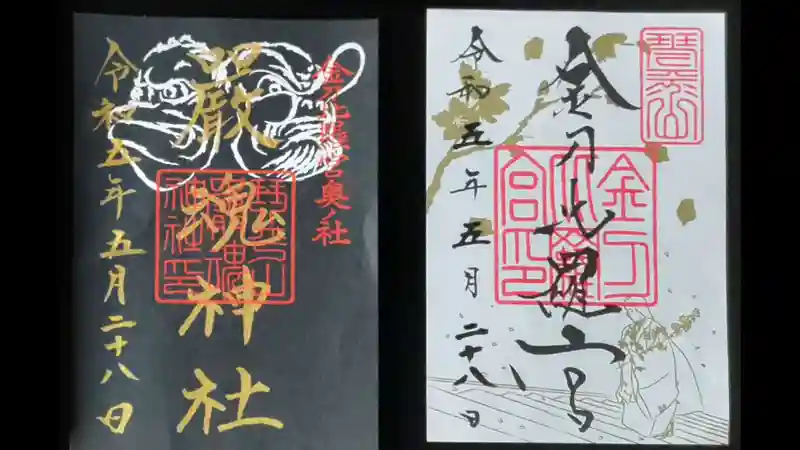 金刀比羅宮奥ノ社
嚴魂神社
令和五年五月二十八日
金刀比羅宮
金刀比羅宮印
令和五年五月二十八日